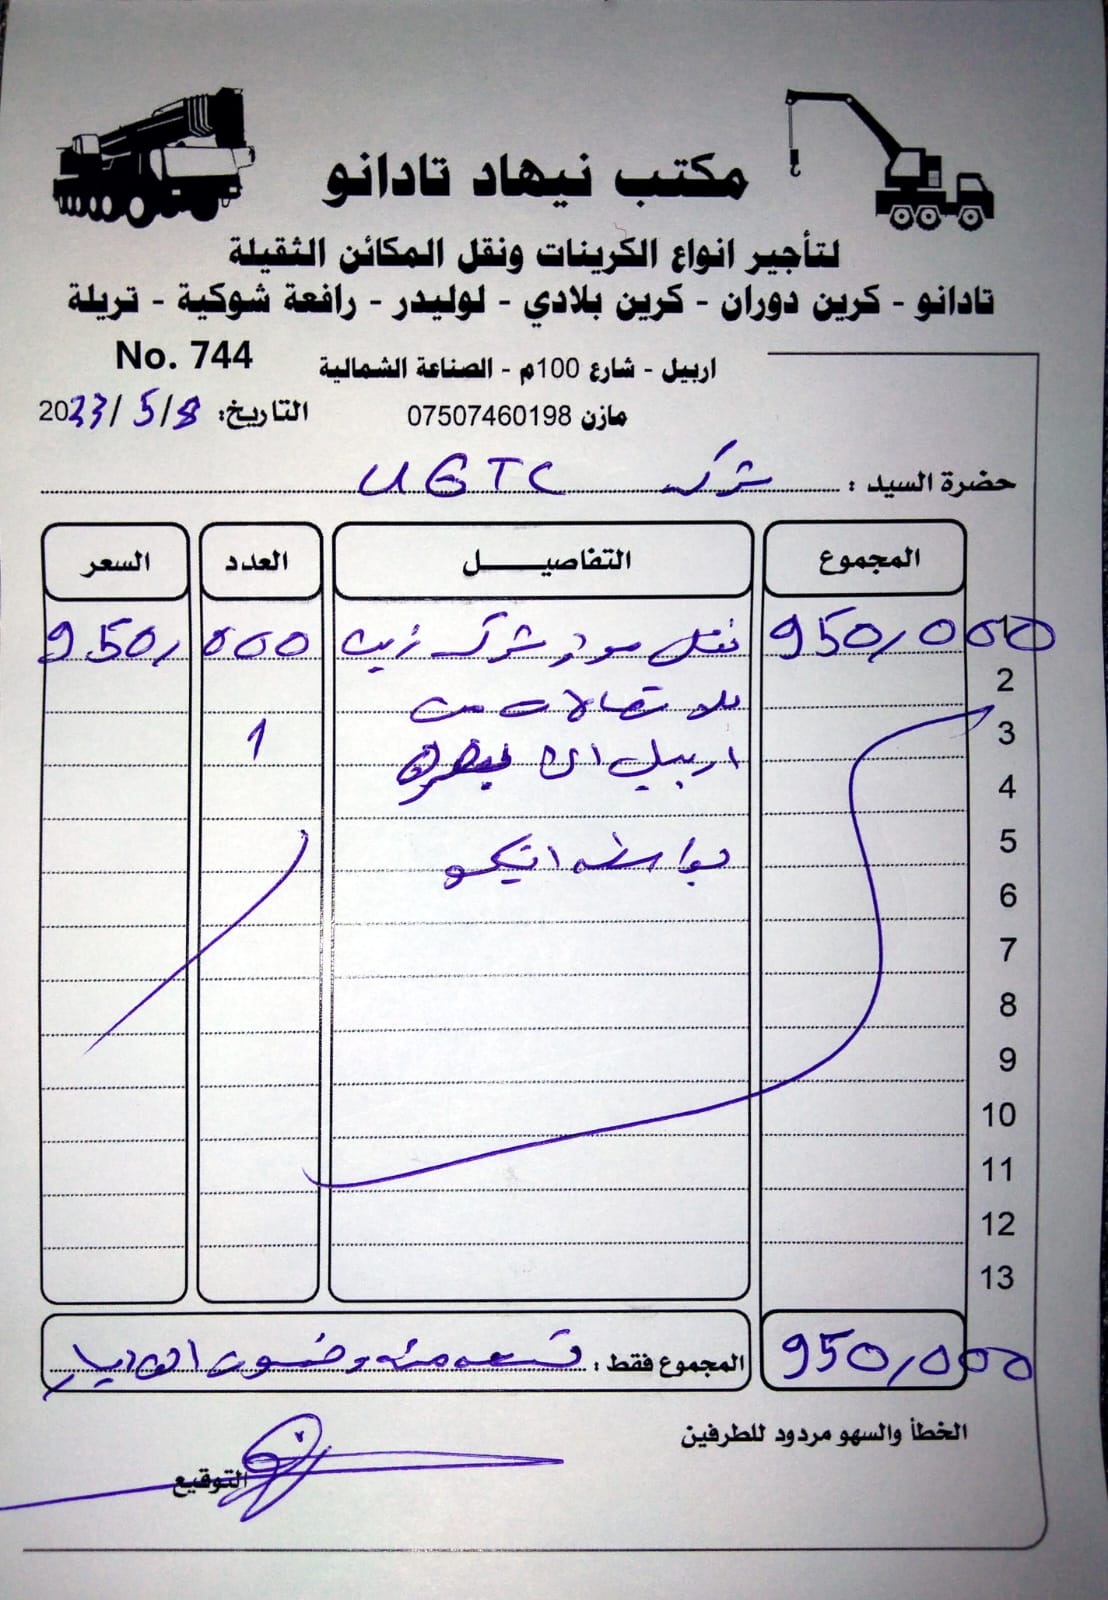 مكتب نيهاد تادانو
لتأجير انواع الكرينات ونقل المكائن الثقيلة
تادانو - كرين دوران - كرين بلادي - لوليدر - رافعة شوكية - تريلة
No. 744
اربيل - شارع 100م - الصناعة الشمالية
التاريخ: 2023/5/8
مازن 07507460198
حضرة السيد : شركة UGTC
المجموع التفاصيل العدد السعر
950,000 نقل مواد شركة زين 950,000
2
للاتصالات من
3
1
اربيل الى
4
5
بواسطة
6
7
8
9
10
11
12
13
المجموع فقط : تسعمئة وخمسون الف دينار 950,000
الخطأ والسهو مردود للطرفين
التوقيع